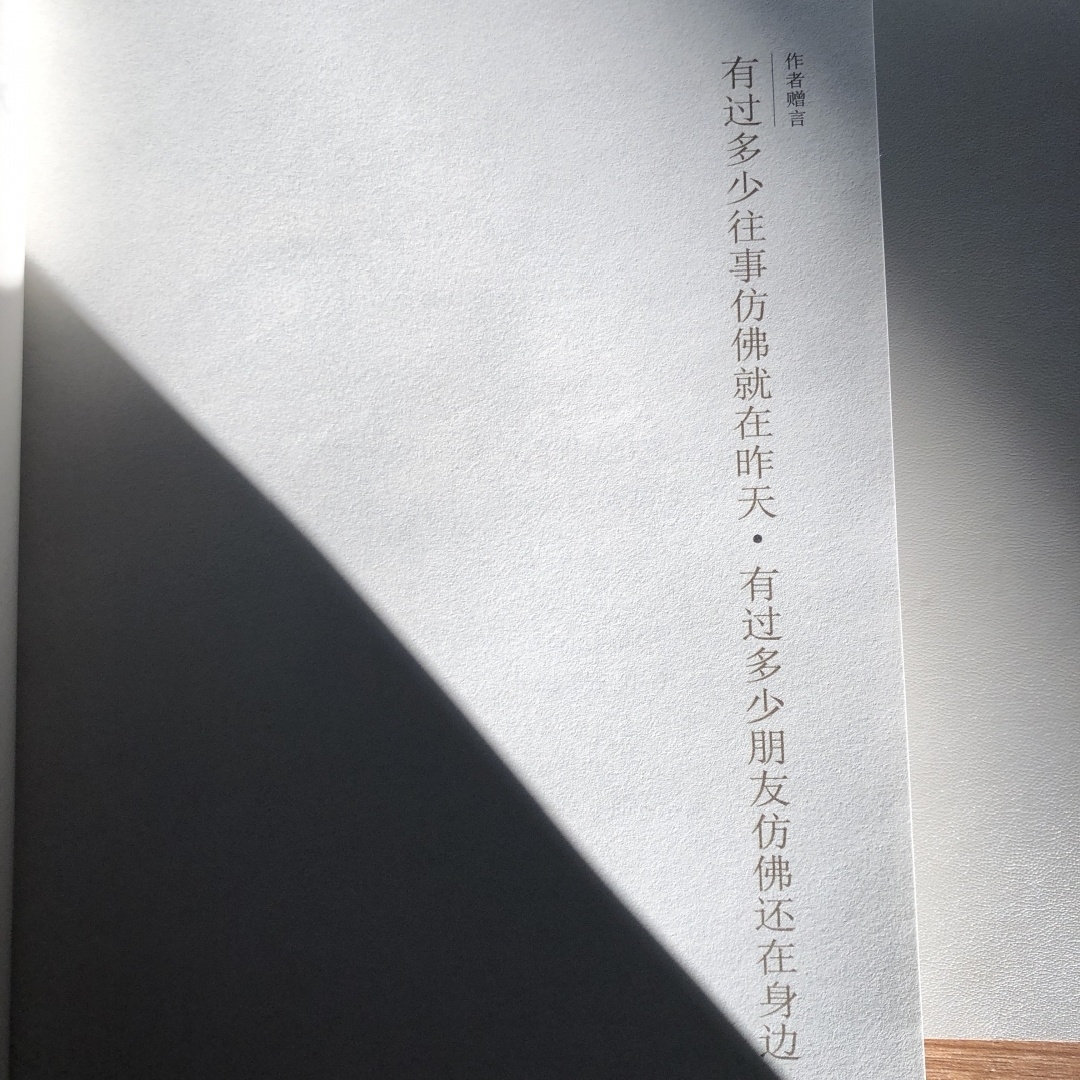 作者赠言
有过多少往事仿佛就在昨天·有过多少朋友仿佛还在身边